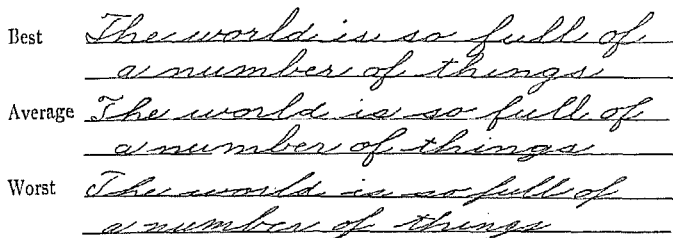 Best The world is so full of
a number of things
Average The world is so full of
a number of things
Worst The world is so full of
a number of things